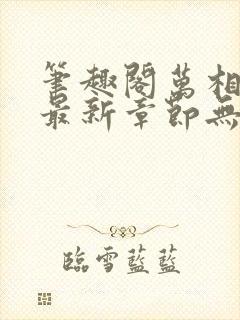 筆趣閣萬相
最新章節無
臨雪藍藍